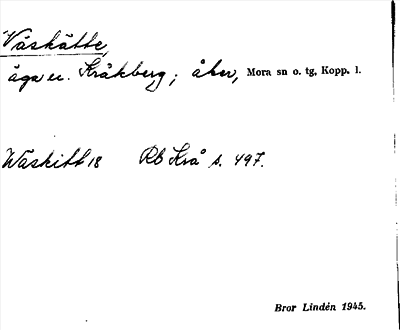 Våskätte,
äga er. Kråkberg; åker, Mora sn o. tg, Kopp. l.
Wåskitt 18 Rb Krå s. 497.
Bror Lindén 1945.